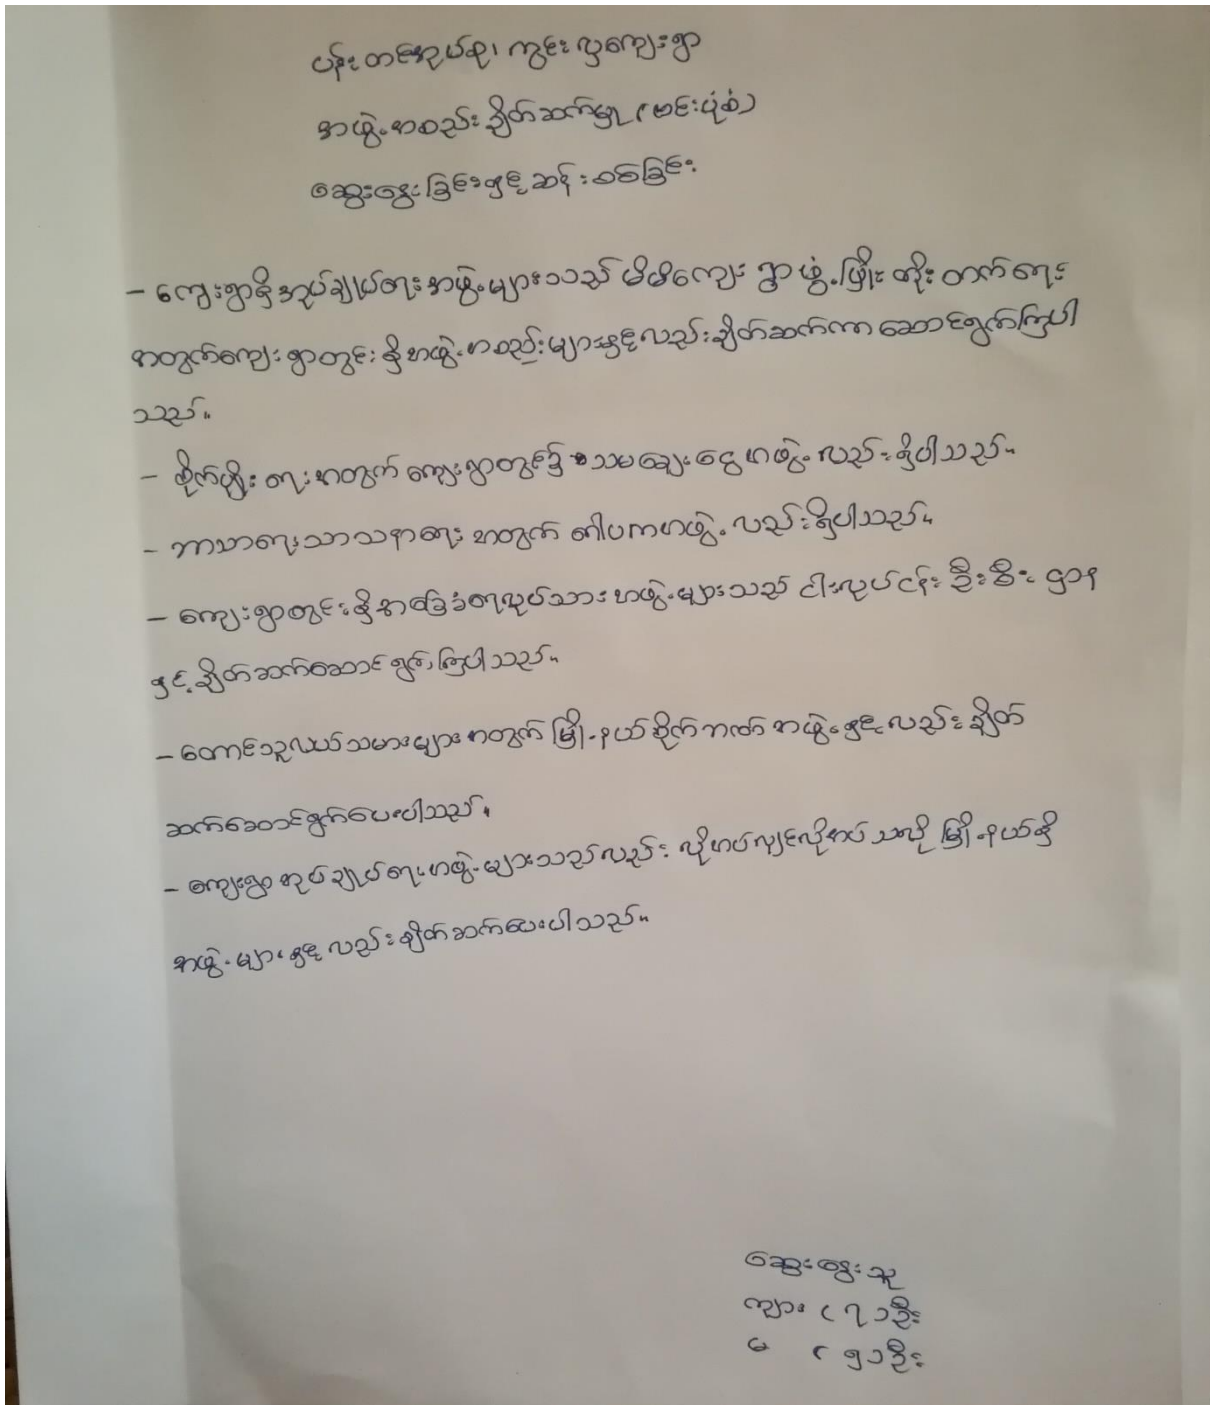 ပန်းတင်အုပ်စု၊ ကွင်းလှကျေးရွာ
အဖွဲ့အစည်းချိတ်ဆက်မှု (မင်းပုံစံ)
ဆွေးနွေးခြင်းနှင့်ဆန်းစစ်ခြင်း
- ကျေးရွာရှိအုပ်ချုပ်ရေးအဖွဲ့များသည် မိမိကျေးရွာဖွံ့ဖြိုးတိုးတက်ရေး
အတွက်ကျေးရွာတွင်းရှိအဖွဲ့အစည်းများနှင့်လည်းချိတ်ဆက်ကာဆောင်ရွက်ကြပါ
သည်။
- စိုက်ပျိုးရေးအတွက် ကျေးရွာတွင်၌ သမချေးငွေအဖွဲ့လည်းရှိပါသည်။
- ဘာသာရေးသာသနာရေးအတွက် ဂေါပကအဖွဲ့လည်းရှိပါသည်။
- ကျေးရွာတွင်းရှိအခြေခံရေလုပ်သားအဖွဲ့များသည် ငါးလုပ်ငန်းဦးစီးဌာန
နှင့်ချိတ်ဆက်ဆောင်ရွက်ကြပါသည်။
- တောင်သူလယ်သမားများအတွက် မြို့နယ်စိုက်ဘဏ်အဖွဲ့နှင့်လည်းချိတ်
ဆက်ဆောင်ရွက်ပေးပါသည်။
- ကျေးရွာအုပ်ချုပ်ရေးအဖွဲ့များသည်လည်း လိုအပ်လျှင်လိုအပ်သလို မြို့နယ်ရှိ
အဖွဲ့များနှင့်လည်းချိတ်ဆက်ပေးပါသည်။
ဆွေးနွေးသူ
ကျား (၇)ဦး
မ (၅)ဦး